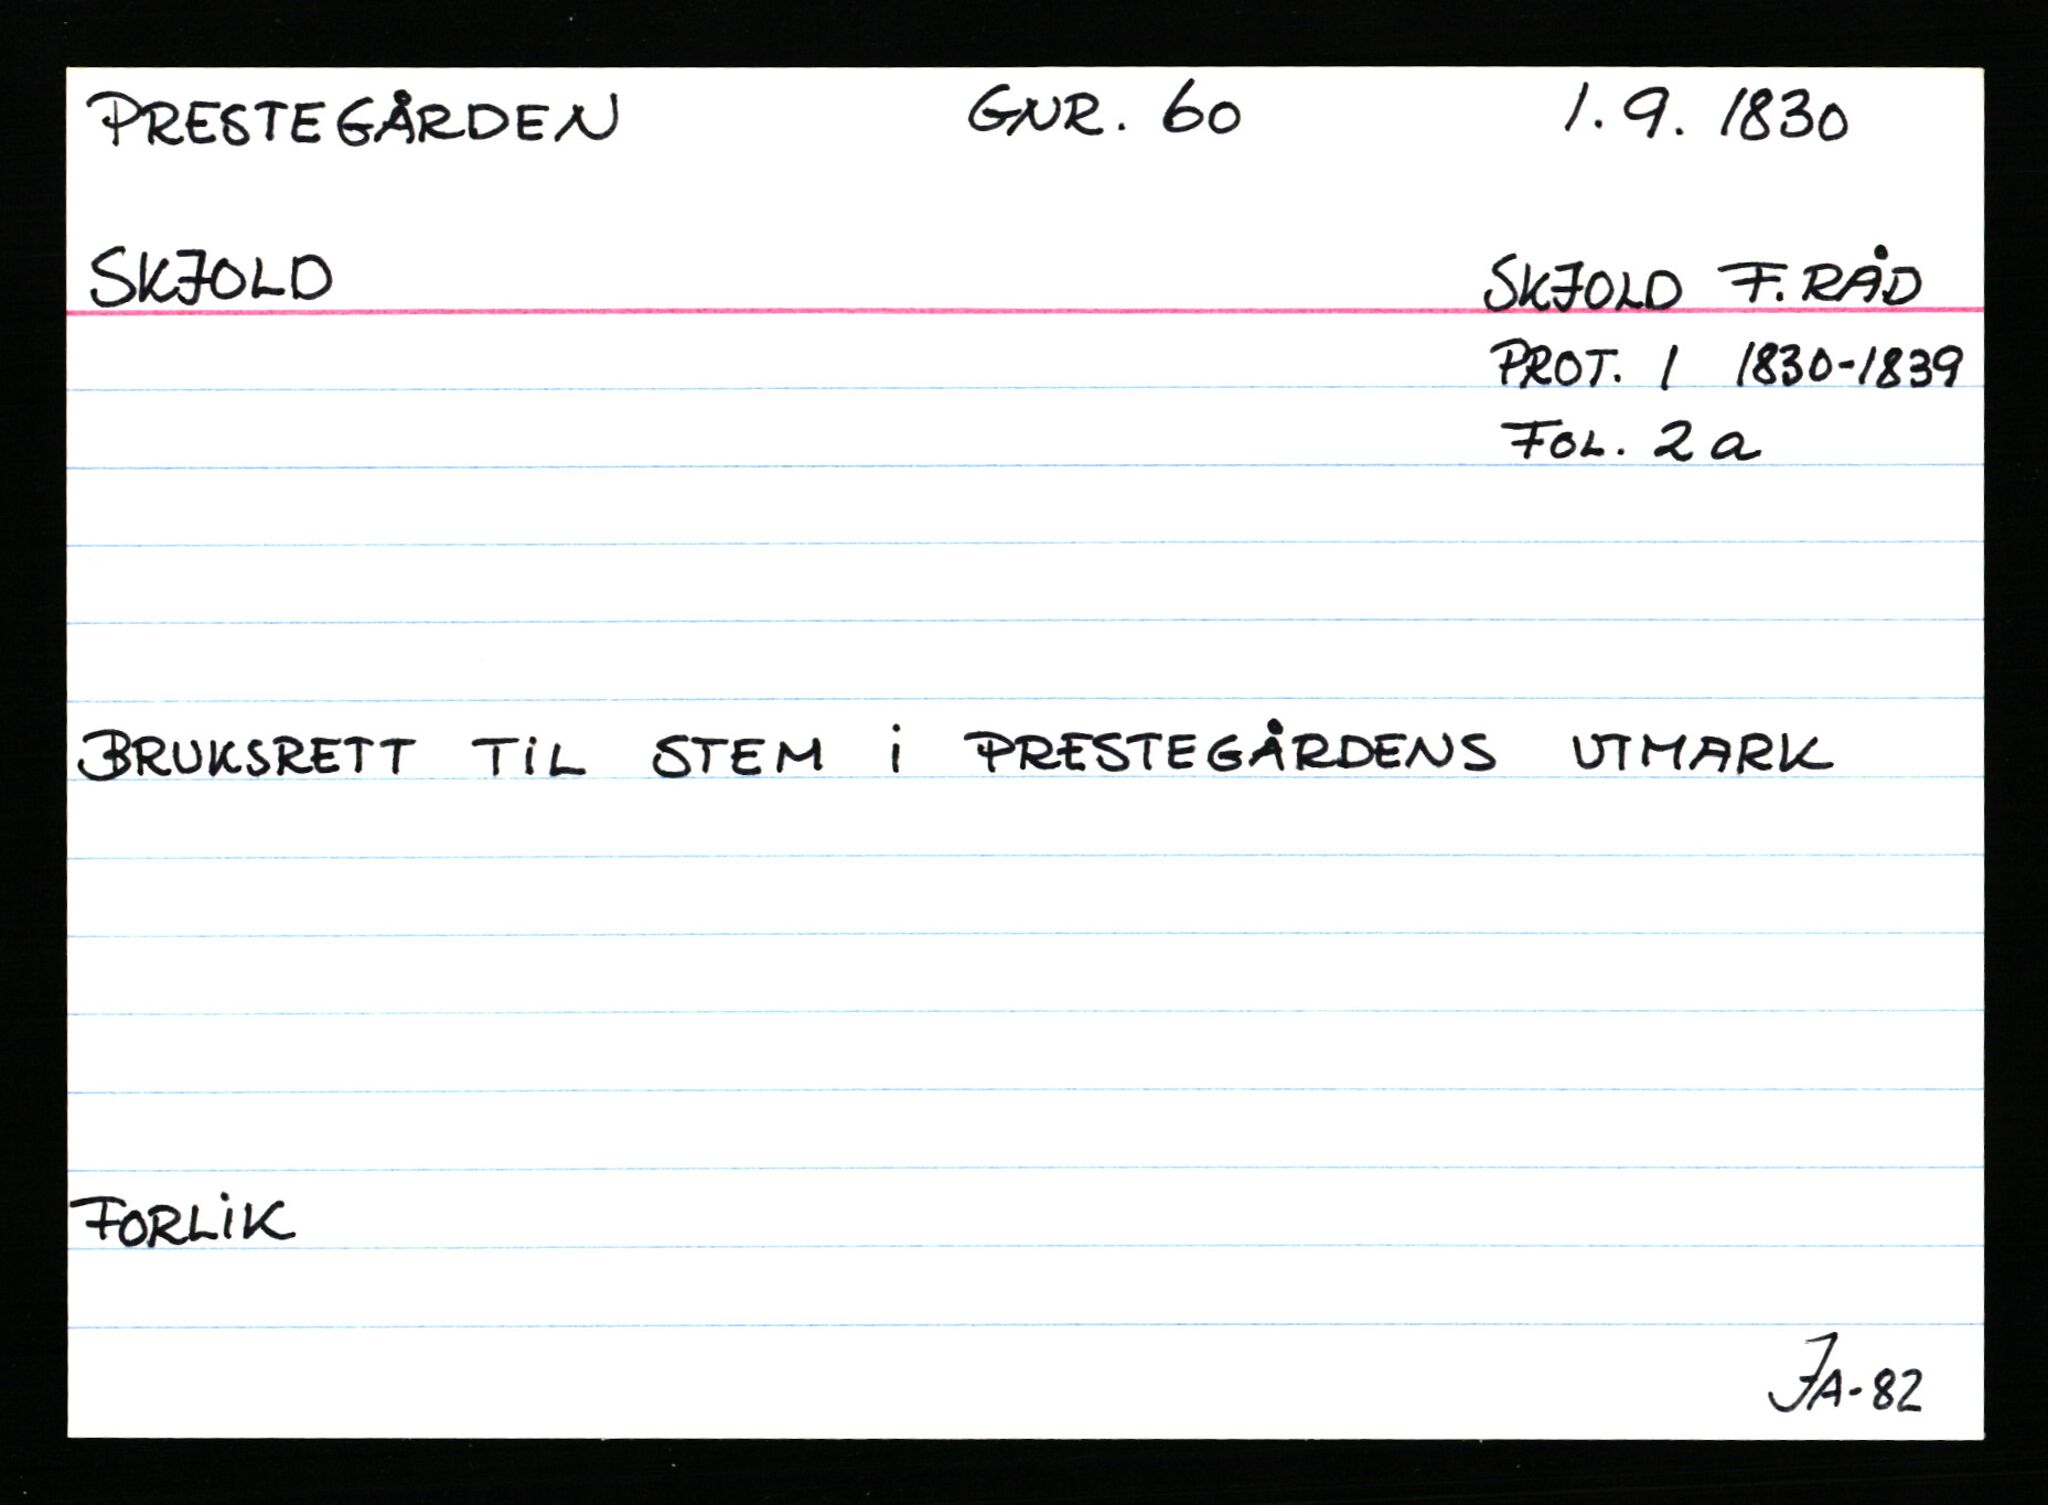 PRESTEGÅRDEN GNR. 60 1.9.1830
SKJOLD SKJOLD F.RÅD
PROT. 1 1830-1839
FOL. 2a
BRUKSRETT TIL STEM I PRESTEGÅRDENS UTMARK
FORLIK
JA-82